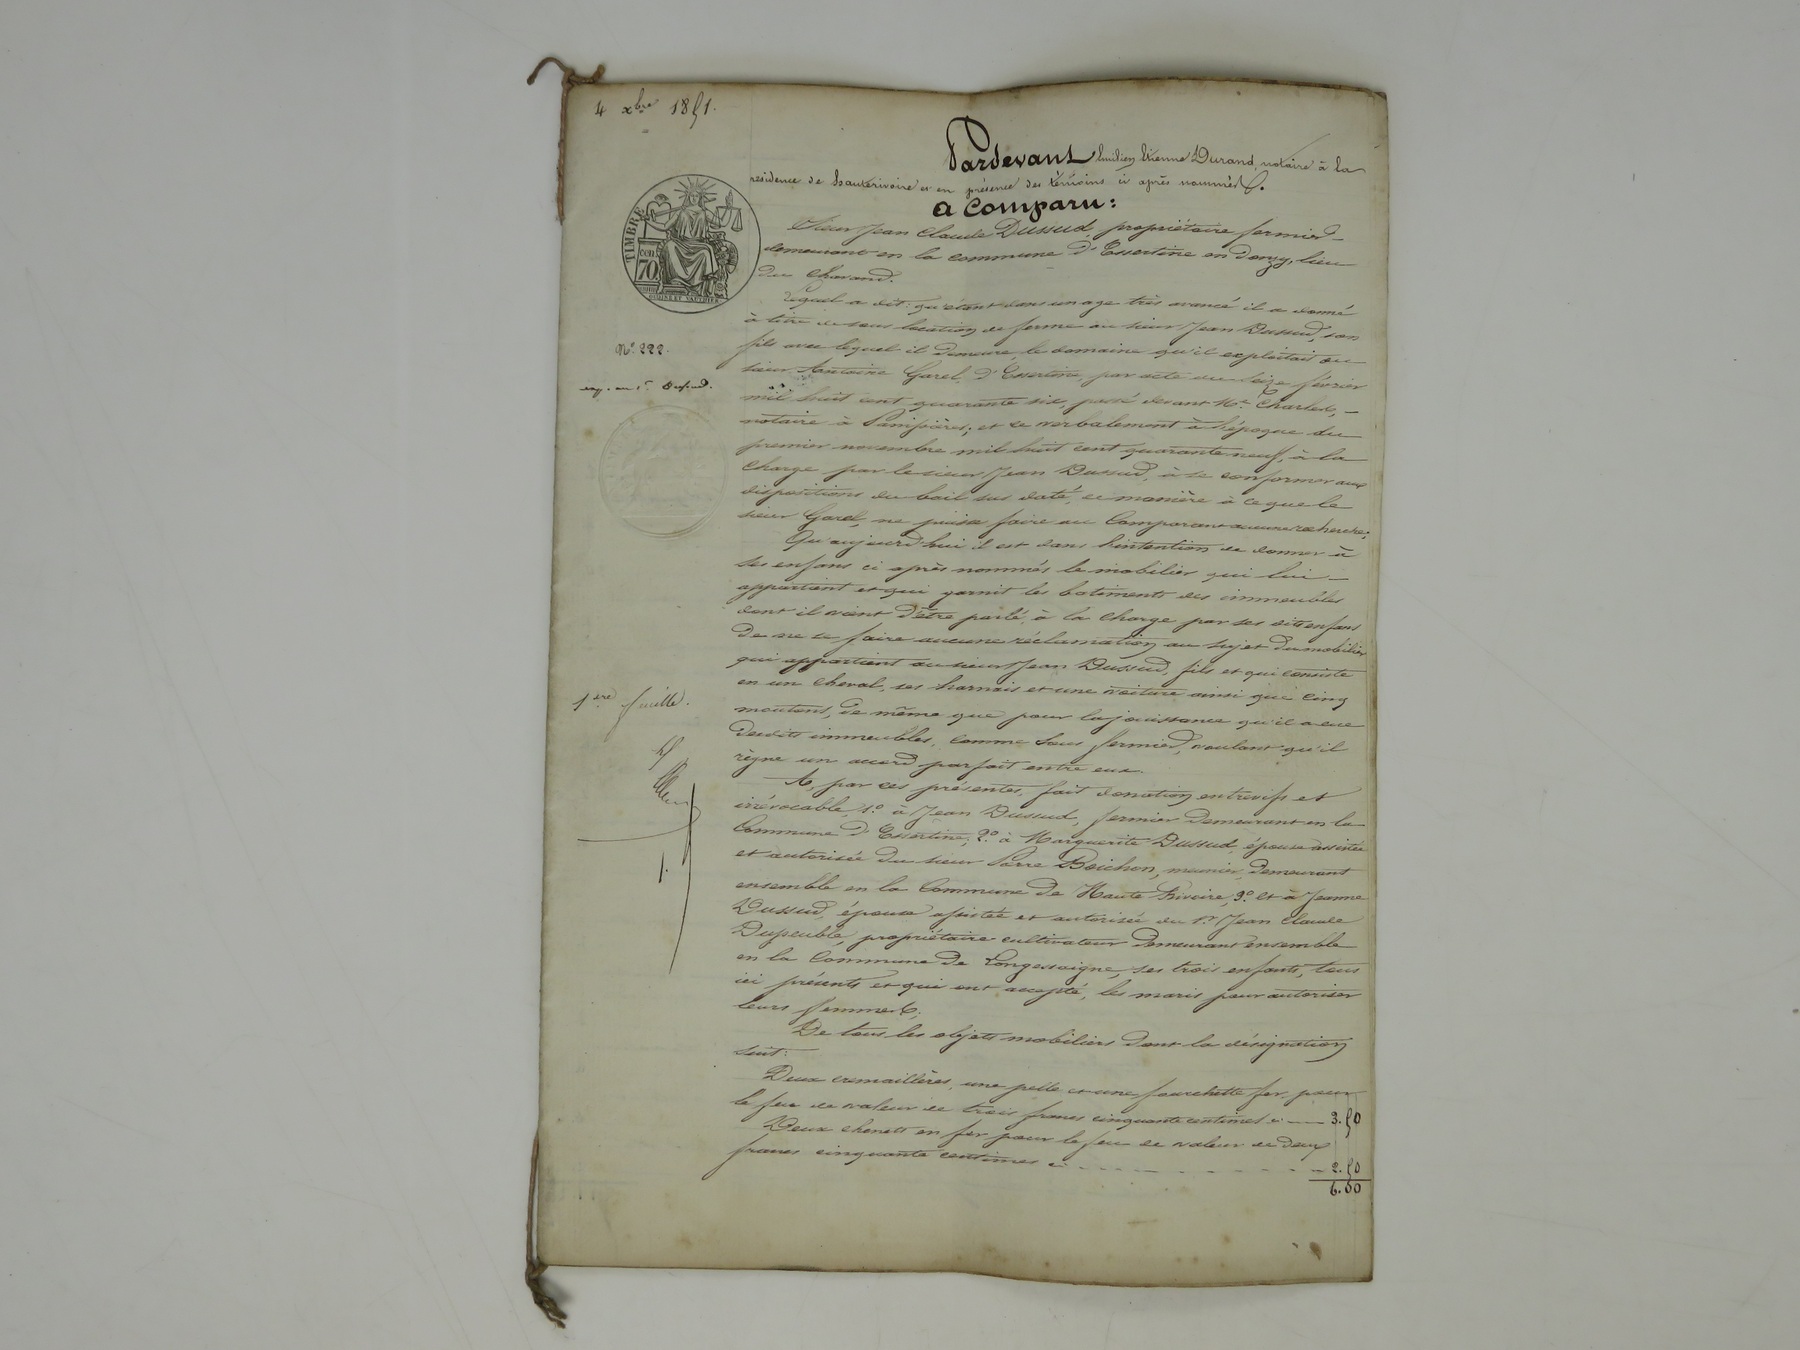 4 xbre 1851.
Pardevant Emilien Etienne Durand, notaire à la
résidence de hauterivoire et en présence des témoins ci après nommés.
a Comparu:
TIMBRE
70
Sieur Jean Claude Dussud, propriétaire fermier
demeurant en la commune d'Essertine en donzy, lieu
du Charand.
Lequel a dit: qu'étant dans un age très avancé il a donné
à titre de sous location de ferme au sieur Jean Dussud, son
fils avec lequel il demeure, le domaine qu'il exploitait du
sieur Antoine Garel, d'Essertine, par acte du seize février
mil huit cent quarante six, passé devant Me Charles,
notaire à Panissières; et ce verbalement à l'époque du
premier novembre mil huit cent quarante neuf, à la
charge par le sieur Jean Dussud, à se conformer aux
dispositions du bail sus daté, de manière à ce que le
sieur Garel, ne puisse faire au Comparant aucune recherche;
Qu'aujourd'hui il est dans l'intention de donner à
ses enfans ci après nommés le mobilier qui lui
appartient et qui garnit les batiments des immeubles
dont il vient d'être parlé, à la charge par ses dits enfans
de ne se faire aucune réclamation au sujet du mobilier
qui appartient au sieur Jean Dussud, fils et qui consiste
en un cheval, ses harnais et une voiture ainsi que cinq
moutons, de même que pour la jouissance qu'il a eue
desdits immeubles, comme sous fermier, voulant qu'il
règne un accord parfait entre eux.
A, par ces présentes, fait donation entrevifs et
irrévocable, 1º à Jean Dussud, fermier demeurant en la
Commune d'Essertine; 2º à Marguerite Dussud, épouse assistée
et autorisée du sieur Pierre Boichon, meunier, demeurant
ensemble en la Commune de Haute Rivoire, 3º et à Jeanne
Dussud, épouse assistée et autorisée du Sr Jean Claude
Dupeuble, propriétaire cultivateur demeurant ensemble
en la Commune de Longessaigne, ses trois enfants, tous
ici présents et qui ont accepté, les maris pour autoriser
leurs femmes;
De tous les objets mobiliers dont la désignation
suit:
Deux cremaillères, une pelle et une fourchette fer, pour
le feu de valeur de trois francs cinquante centimes ci 3.50
Deux chenets en fer pour le feu de valeur de deux
francs cinquante centimes ci 2.50
6.00
Nº 222.
1ère feuille.
1.